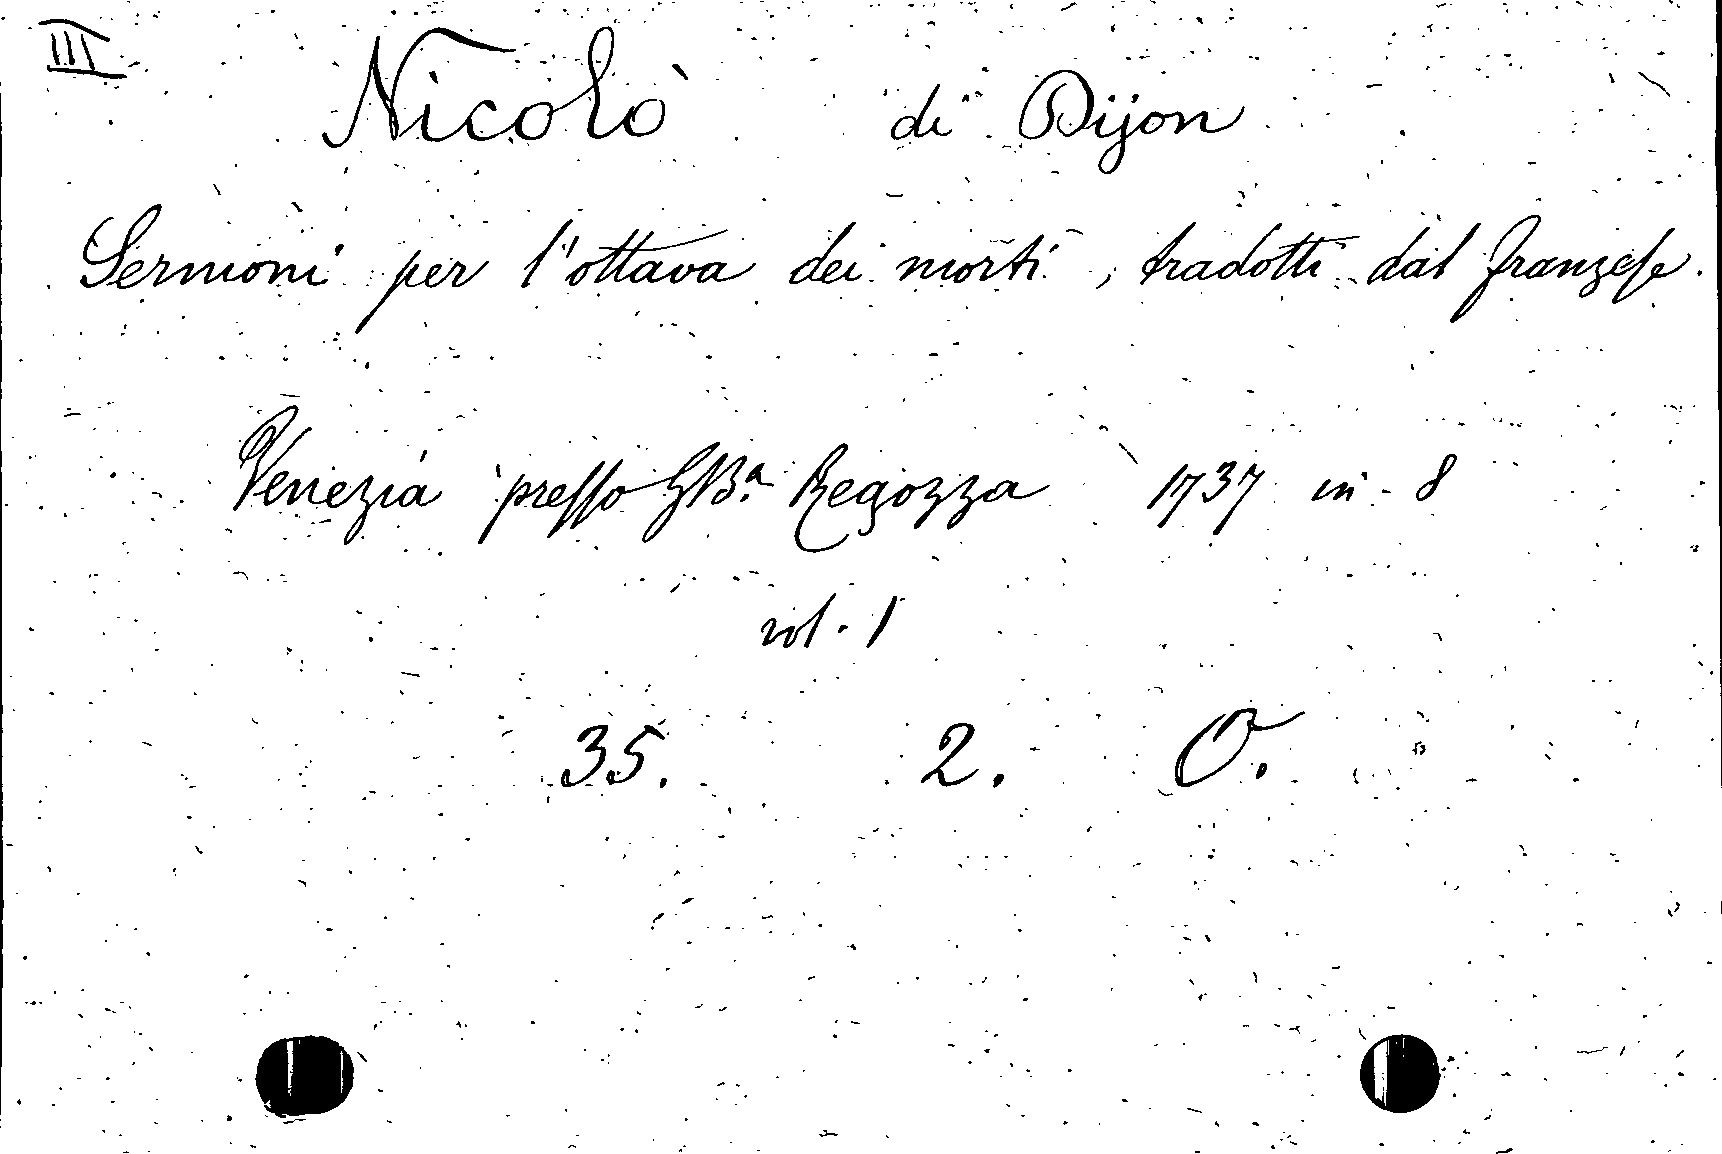 III
Nicolò di Dijon
Sermoni per l'ottava dei morti, tradotti dal franzese.
Venezia presso GBa. Regozza 1737 in-8
vol. 1
35. 2. O.